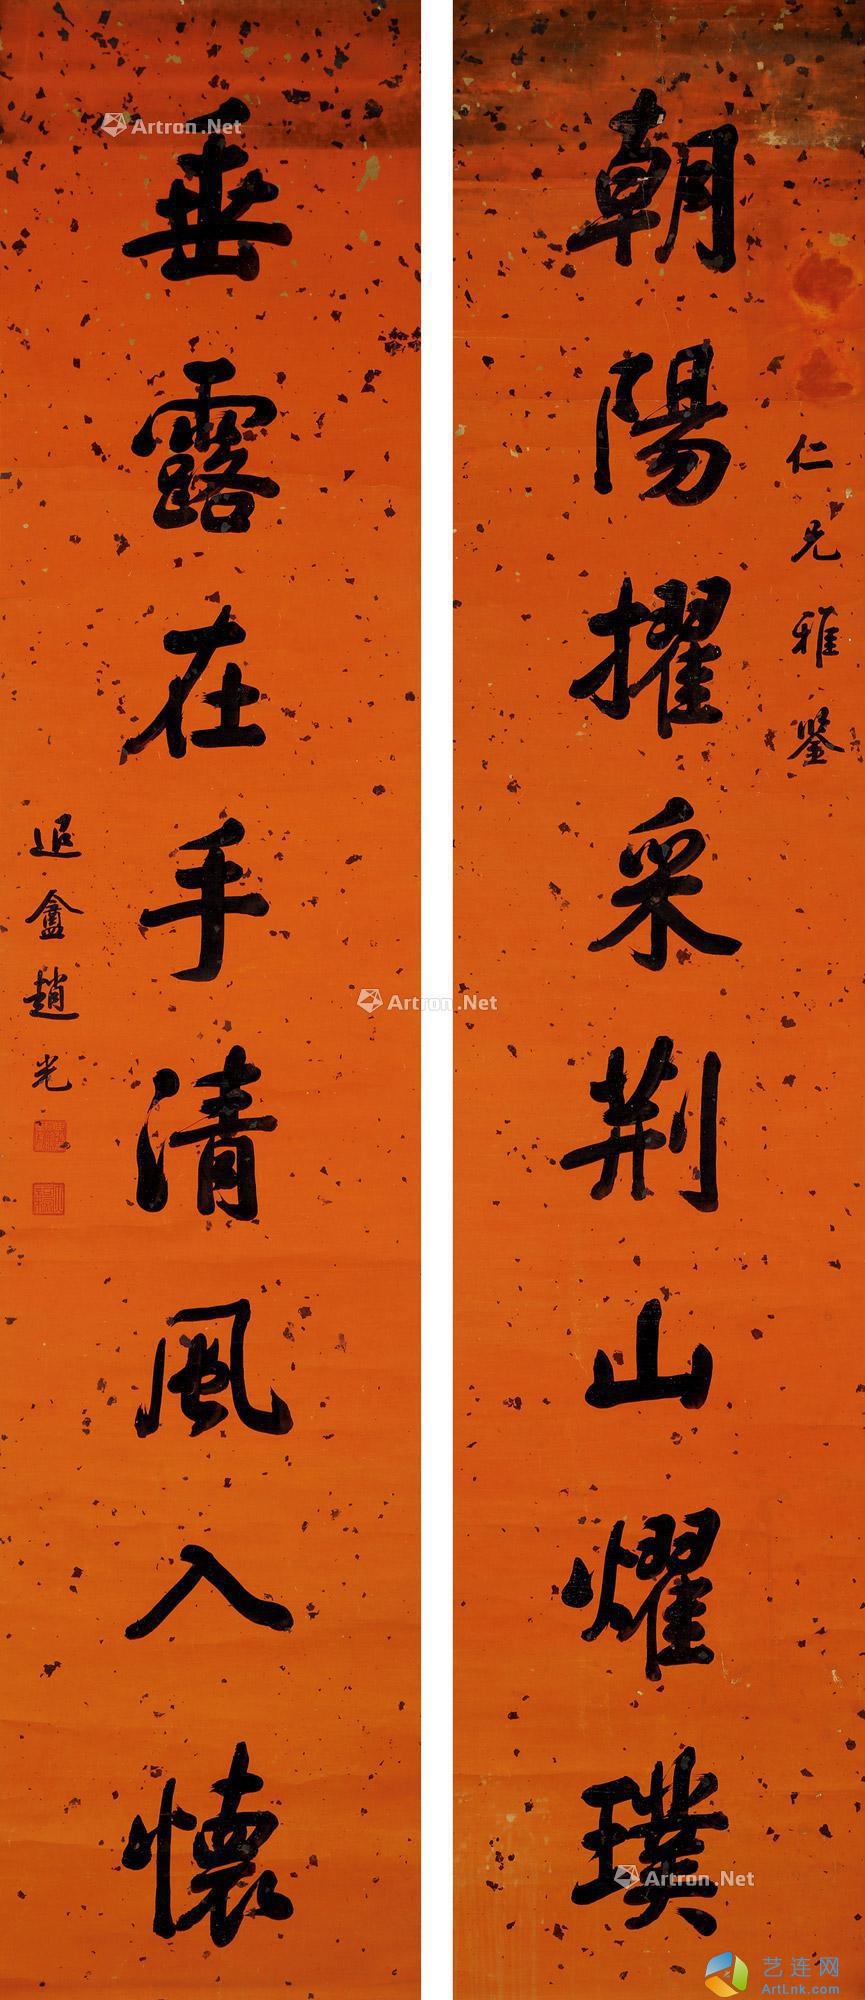 朝陽擢采荆山燿璞
仁兄雅鑒
垂露在手清風入懷
退盦趙光
Artron.Net
Artron.Net
Artron.Net
艺连网
ArtLnk.com